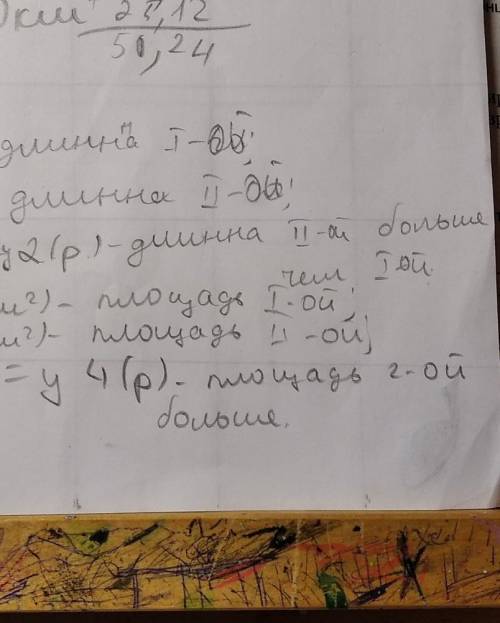 25,12
50,24
длинна I-ой;
длинна II-ой;
у 2(р.)-длинна II-ой больше
чем I ой.
м²)- площадь I-ой;
м²)- площадь II-ой;
= у 4(р)- площадь 2-ой
больше.